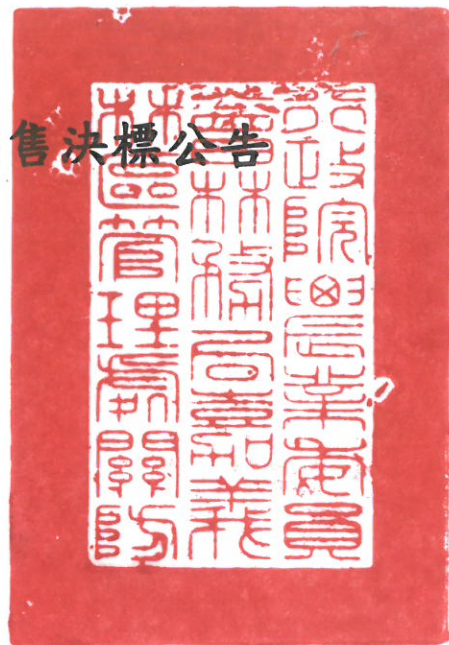 售決標公告
行政院農業委員
會林務局嘉義
林區管理處關防